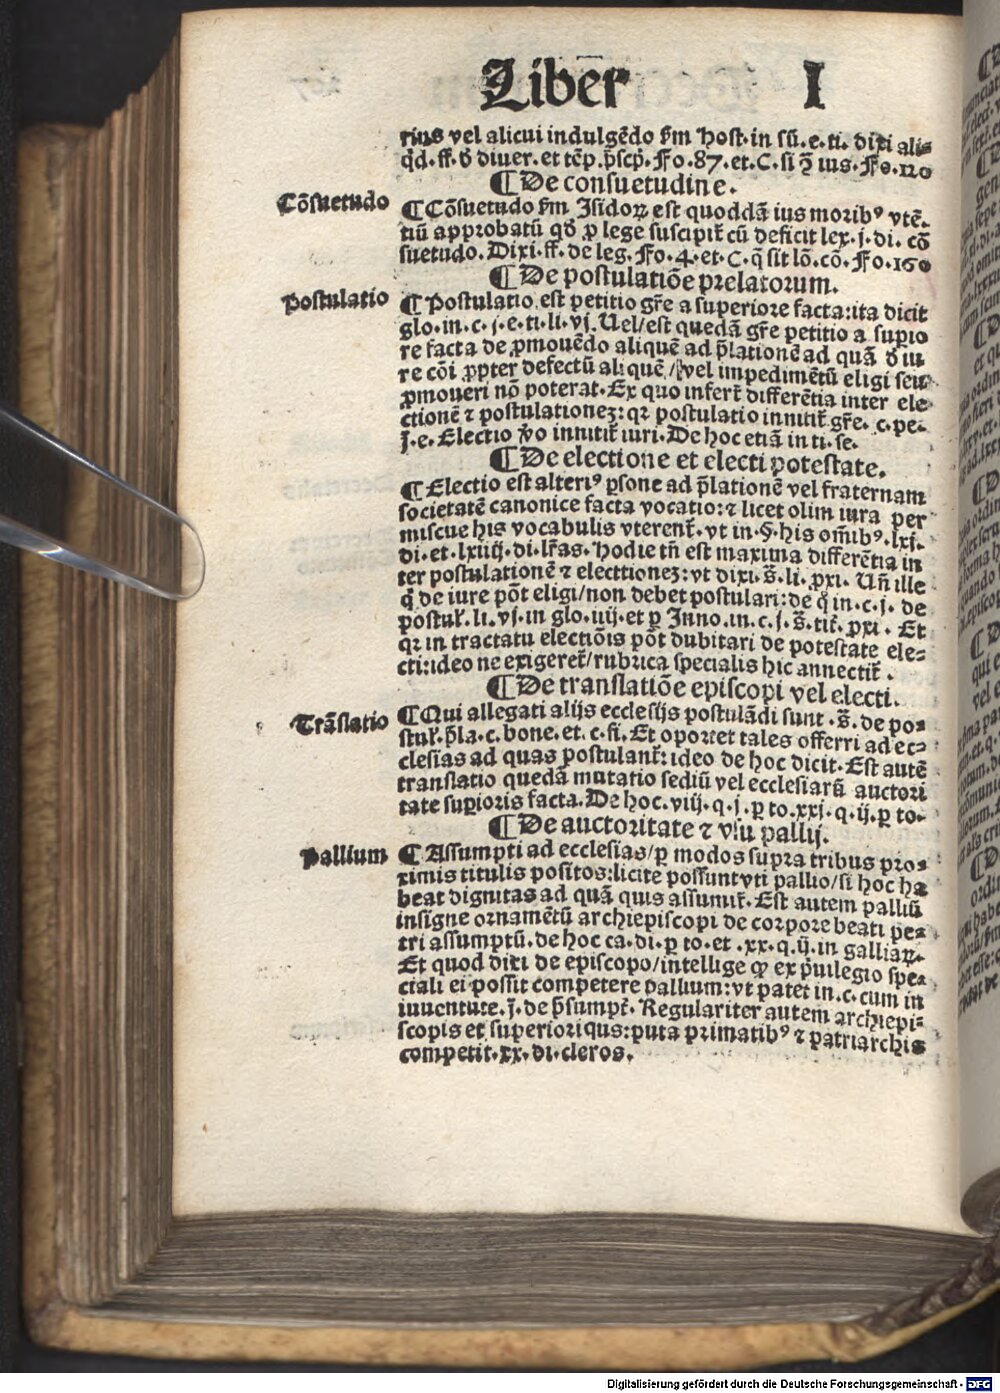 Liber I
rius vel alicui indulgẽdo ẜm Host. in sũ. e. ti. dixi alis
qd. ff. d diuer. et tẽp. pscp. Fo. 87. et. C. si q̃ ius. Fo. 120
¶ De consuetudine.
Cõsuetudo
¶ Cõsuetudo ẜm Isidoꝝ est quoddã ius moribꝰ vtẽ-
tiũ approbatũ qđ ꝓ lege suscipit̃ cũ deficit lex. j. di. cõ
suetudo. Dixi. ff. de leg. Fo. 4. et. C. q̃ sit lõ. cõ. Fo. 160
¶ De postulatiõe prelatorum.
Postulatio
¶ Postulatio est petitio gr̃e a superiore facta: ita dicit
glo. in. c. j. e. ti. li. vj. Uel/est quedã gr̃e petitio a supio
re facta de ꝓmouẽdo aliquẽ ad p̃lationẽ ad quã đ iu
re cõi ꝓpter defectũ aliquẽ/vel impedimẽtũ eligi seu
ꝓmoueri nõ poterat. Ex quo infert̃ differẽtia inter ele
ctionẽ ⁊ postulationeꝫ: qꝛ postulatio innitit̃ gr̃e. c. pe.
j̃. e. Electio ṽo innitit̃ iuri. De hoc etiã in ti. se.
¶ De electione et electi potestate.
¶ Electio est alteriꝰ ꝑsone ad p̃lationẽ vel fraternam
societatẽ canonice facta vocatio: ⁊ licet olim iura per
miscue his vocabulis vterent̃. vt in. §. his om̃ibꝰ. lxj.
di. et. lxiiij. di. lr̃as. Hodie tñ est maxima differẽtia in
ter postulationẽ ⁊ electtioneꝫ: vt dixi. s̃. li. ꝓxi. Uñ ille
q̃ de iure põt eligi/non debet postulari: de q̊ in. c. j. de
postul̃. li. vj. in glo. iiij. et ꝑ Inno. in. c. j. s̃. tit̃. ꝓxi. Et
qꝛ in tractatu electiõis põt dubitari de potestate ele-
cti: ideo ne exigeret̃/rubrica specialis hic annectit̃.
¶ De translatiõe episcopi vel electi.
Trãslatio
¶ Qui allegati alijs ecclesijs postulãdi sunt. s̃. de po-
stul̃. p̃la. c. bone. et. c. fi. Et oportet tales offerri ad ec-
clesias ad quas postulant̃: ideo de hoc dicit. Est autẽ
translatio quedã mutatio sediũ vel ecclesiarũ auctori
tate suꝑioris facta. De hoc. viij. q. j. ꝑ to. xxj. q. ij. ꝑ to.
¶ De auctoritate ⁊ vsu pallij.
Pallium
¶ Assumpti ad ecclesias/ꝑ modos supra tribus pro-
ximis titulis positos: licite possunt vti pallio/si hoc ha
beat dignitas ad quã quis assumit̃. Est autem palliũ
insigne ornamẽtũ archiepiscopi de corpore beati pe-
tri assumptũ. de hoc ca. di. ꝑ to. et. xx. q. ij. in galliaꝝ.
Et quod dixi de episcopo/intellige ꝙ ex p̃uilegio spe-
ciali ei possit competere pallium: vt patet in. c. cum in
iuuentute. j̃. de p̃sumpt̃. Regulariter autem archiepi-
scopis et superioriqus: puta primatibꝰ ⁊ patriarchis
competit. xx. di. cleros.
Digitalisierung gefördert durch die Deutsche Forschungsgemeinschaft - DFG